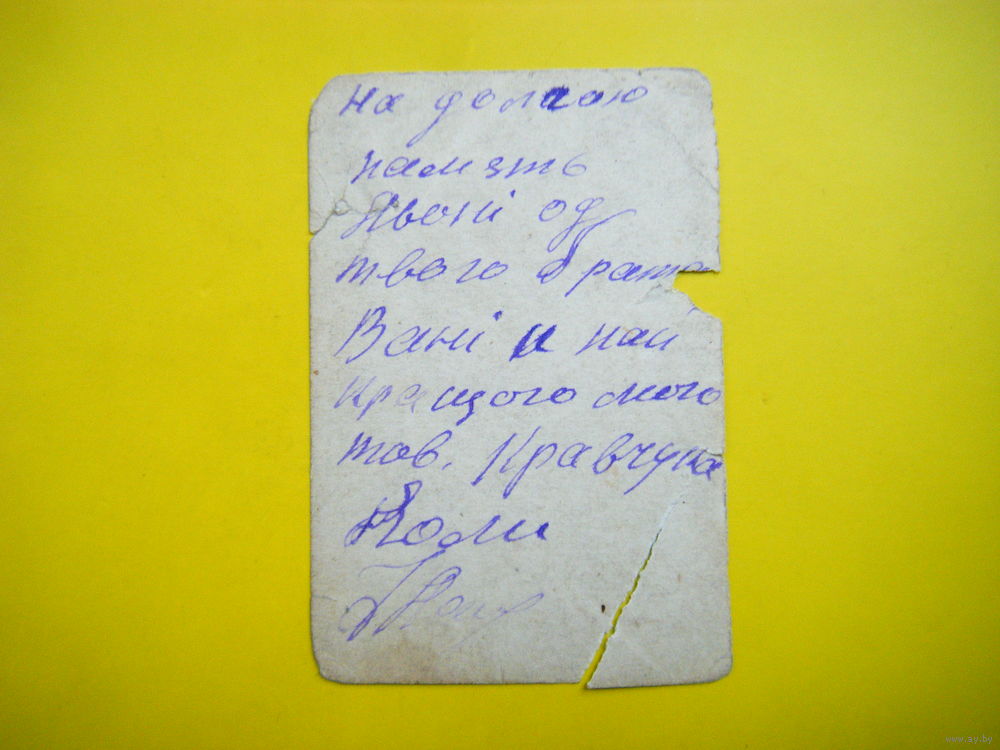 На долгою
память
Явені од
твого брата
Вані и най
кращого мого
тов. Кравчука
Коли
www.ay.by